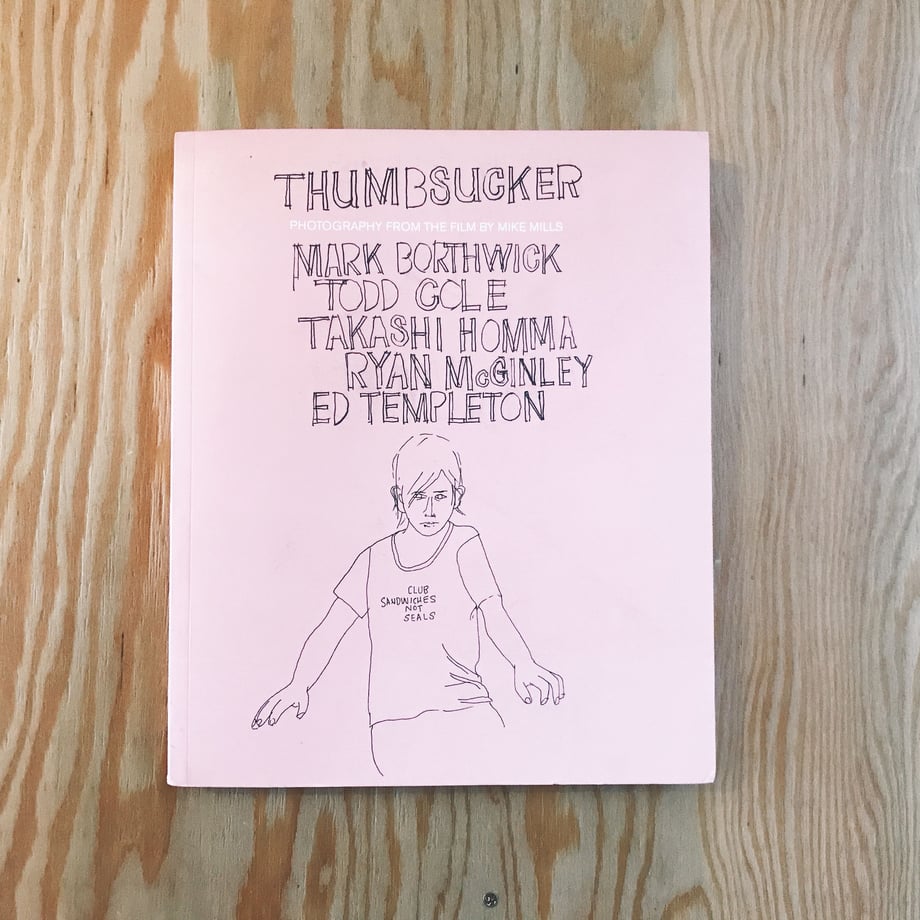 THUMBSUCKER
PHOTOGRAPHY FROM THE FILM BY MIKE MILLS
MARK BORTHWICK
TODD COLE
TAKASHI HOMMA
RYAN McGINLEY
ED TEMPLETON
CLUB
SANDWICHES
NOT
SEALS